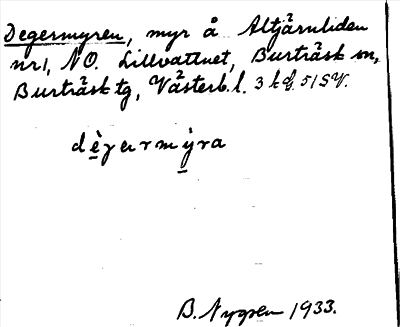 Degermyren, myr å Altjärnliden
nr 1, NO. Lillvattnet, Burträsk sn,
Burträsk tg, Västerb. l. 3 kf. 51SV.
dègarmỳra
B. Nygren 1933.